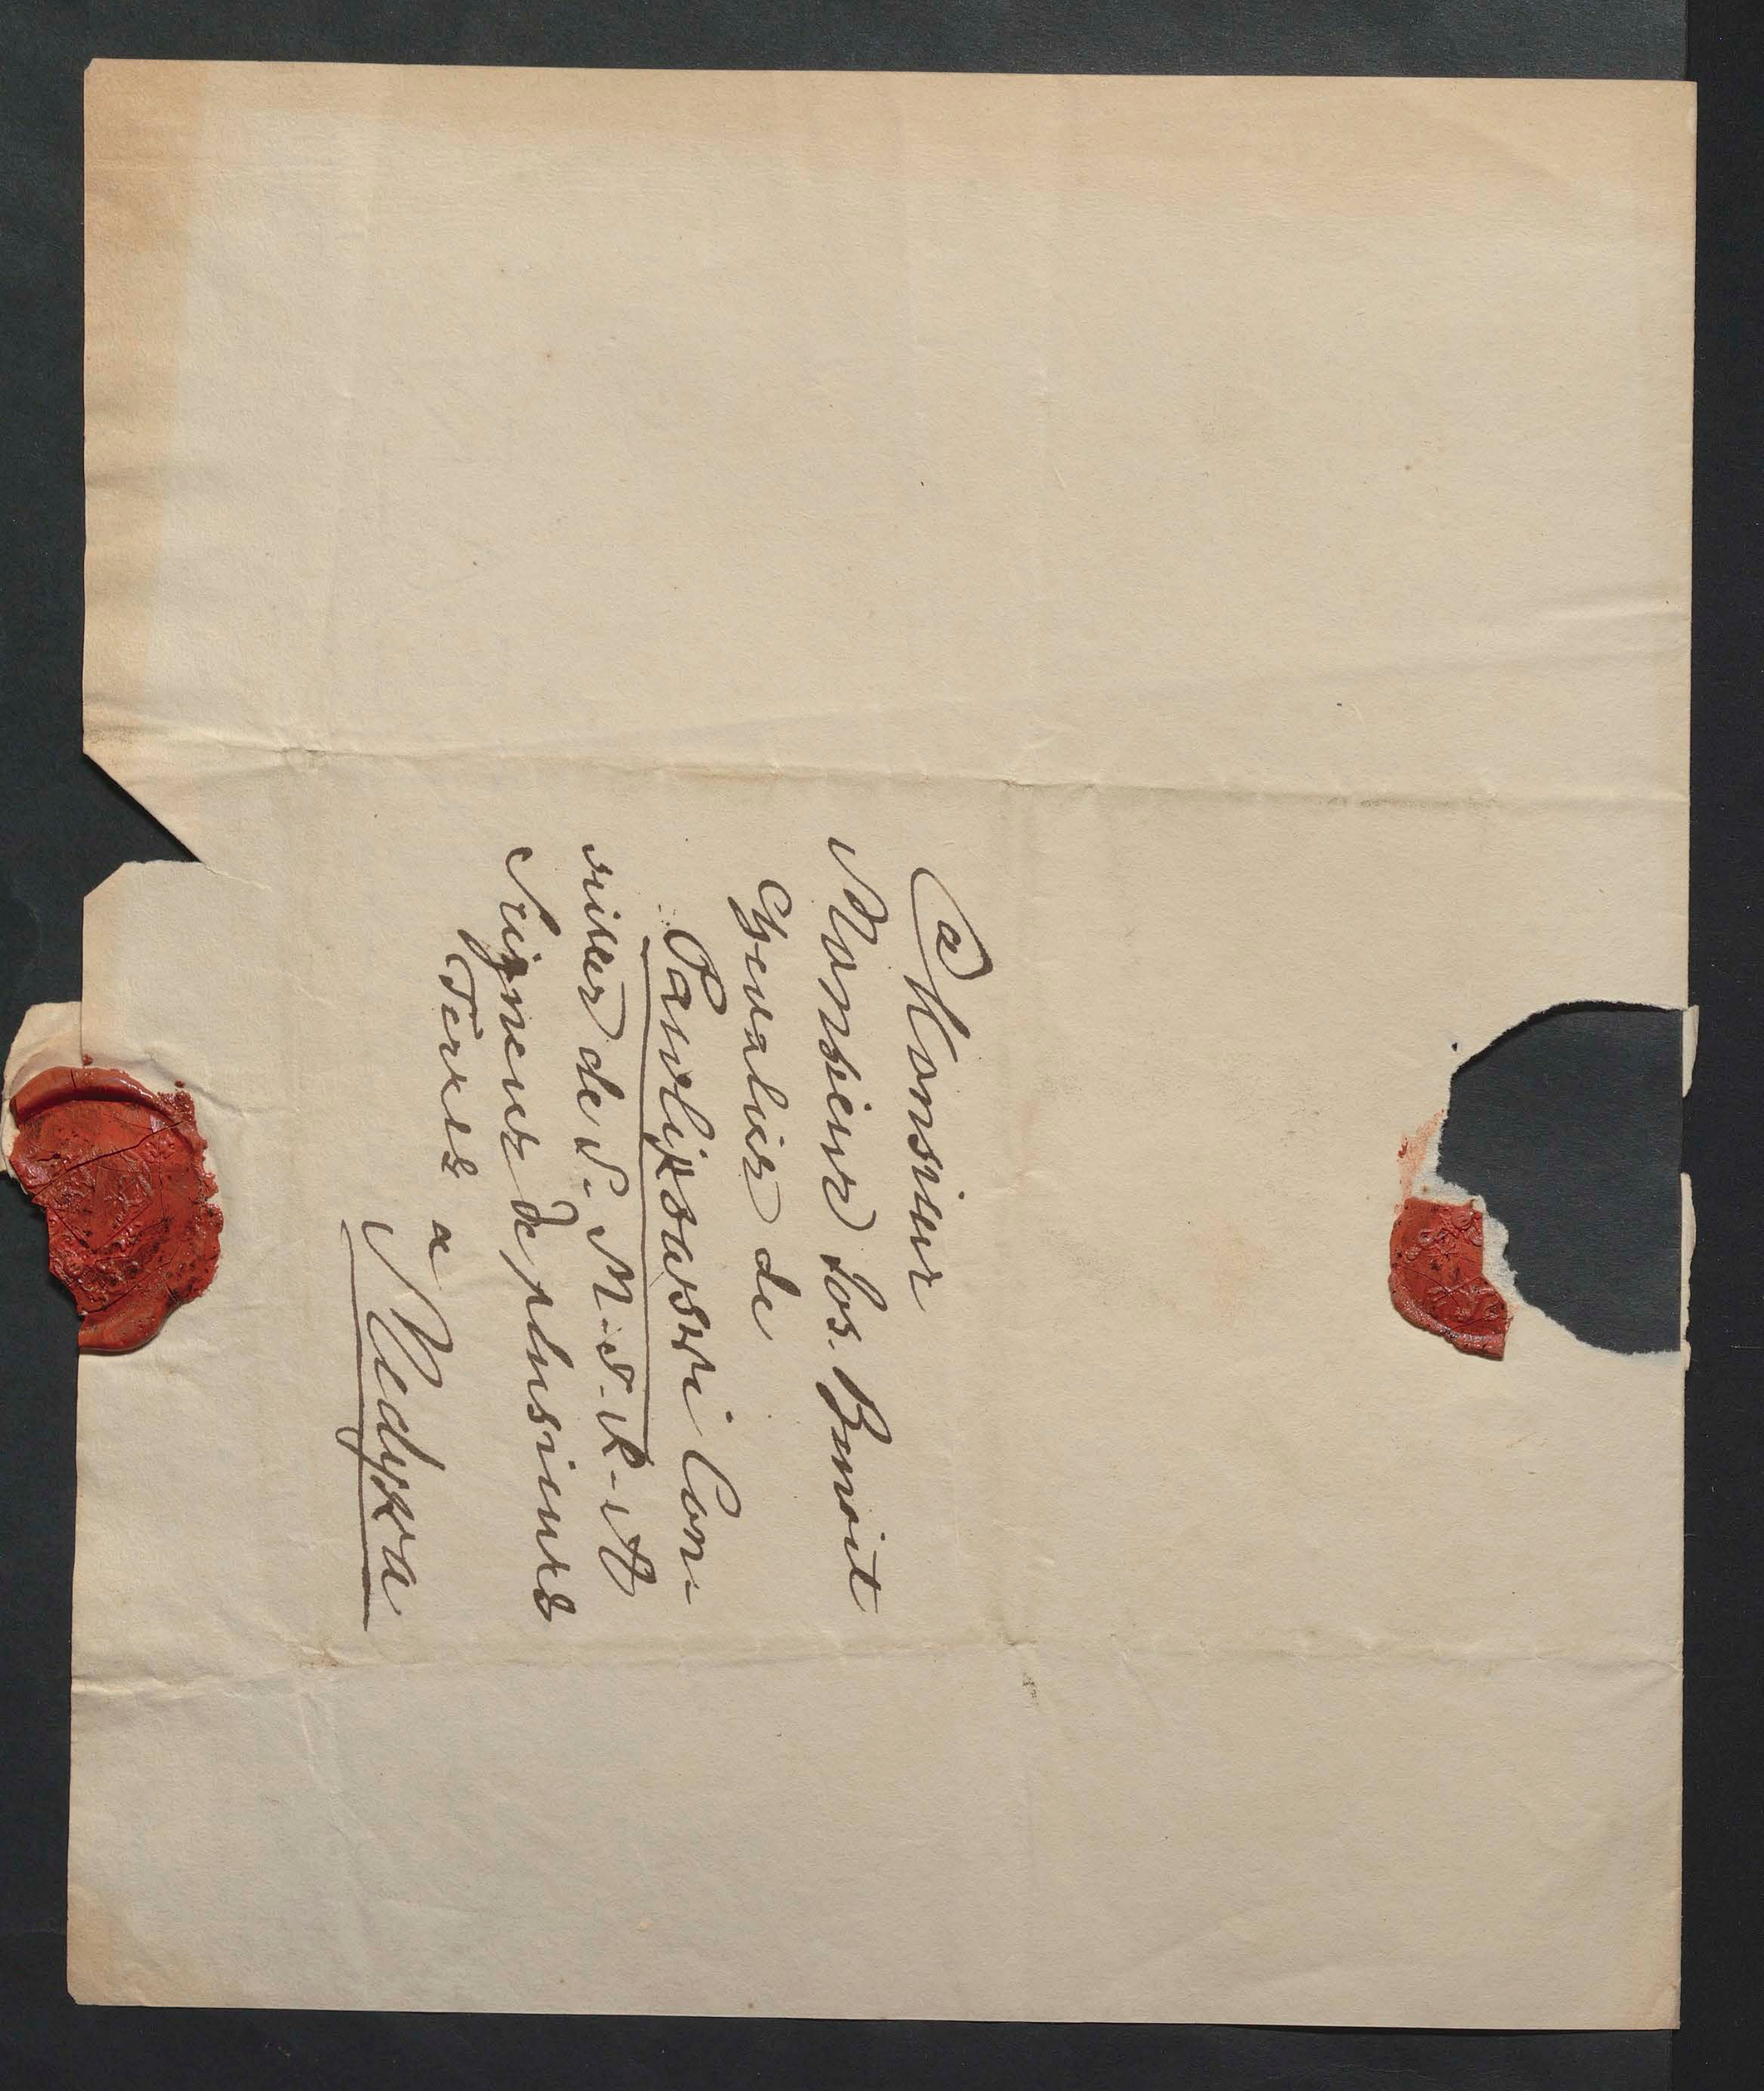 a Monsieur
Monsieur Jos. Benoit
Chevalier de
Pawlikowski Con-
siller de S. M. S. R. A
Seigneur de plusieurs
Terres a
Medyka